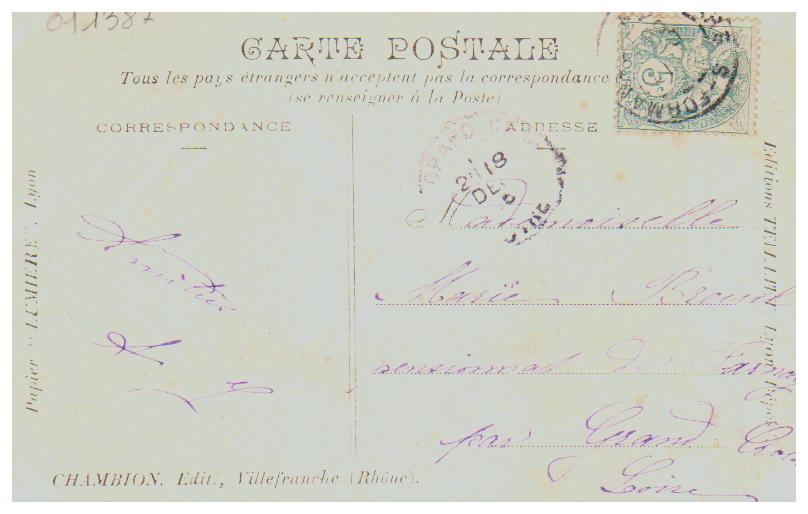 011387
CARTE POSTALE
Tous les pays étrangers n'acceptent pas la correspondance
(se renseigner à la Poste)
CORRESPONDANCE
ADRESSE
Papier "LUMIÈRE", Lyon
Amitiés
GRAND
18
DE
Mademoiselle
Marie
pensionnat de
par Grand Croix
Loire
Editions Lyon
CHAMBION. Edit., Villefranche (Rhône).